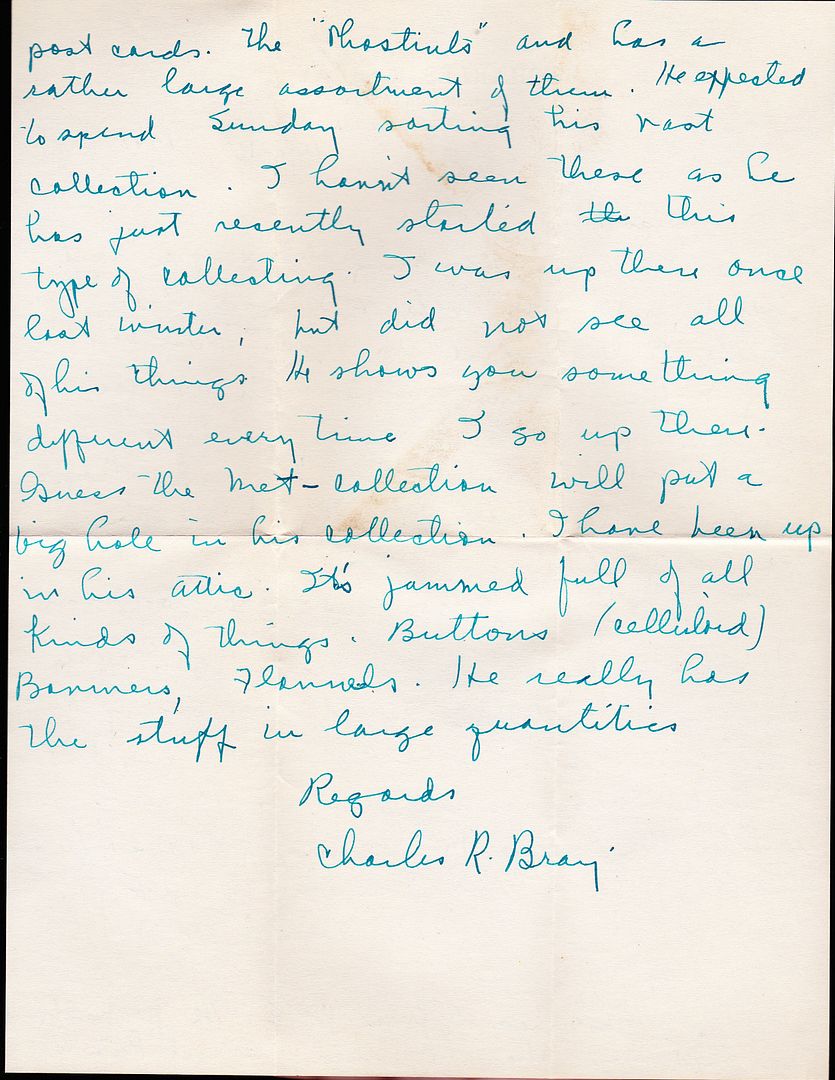 post cards. The "Phostints" and has a
rather large assortment of them. He expected
to spend Sunday sorting his vast
collection. I havn't seen these as he
has just recently started the this
type of collecting. I was up there once
last winter, but did not see all
of his things. He shows you something
different every time I go up there.
Guess the Met-collection will put a
big hole in his collection. I have been up
in his attic. It's jammed full of all
kinds of things. Buttons (celluloid)
Banners, Flannels. He really has
the stuff in large quantities
Regards
Charles R. Bray